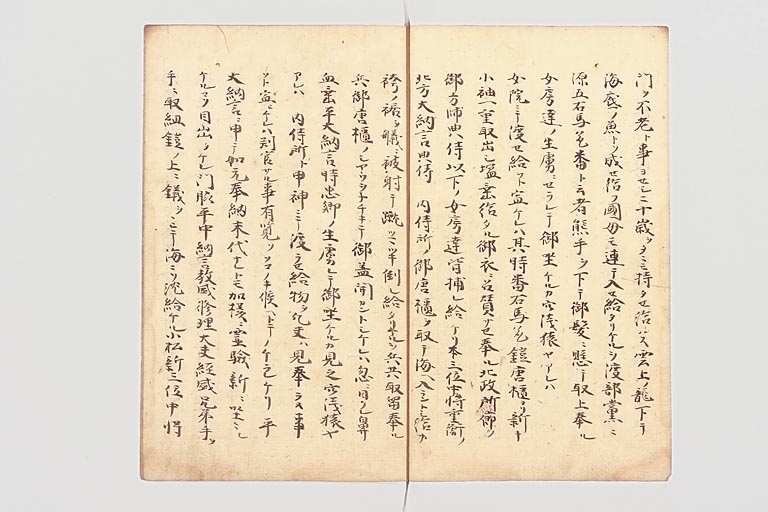 門ヲ不老ト事ヨセシニ十歳ヲタニ持タセ給ハス雲上ノ龍下テ
海底ノ魚ト成セ給フ國母モ連テ入セ給タリケルヲ渡部黨ニ
源五右馬允番ト云者熊手ヲ下テ御髪ニ懸テ取上奉ル
女房達ノ生虜ニセラレテ御坐ケルカ穴浅猿ヤアレハ
女院ニ渡セ給フト宣ケレハ其時番右馬允鎧唐櫃ヨリ新キ
小袖一重取出シ塩垂給タル御衣ニ召質サセ奉ル北政所廊ノ
御方帥典侍以下ノ女房達皆捕レ給ケリ本三位中将重衡ノ
北方大納言典侍 内侍所ノ御唐櫃ヲ取テ海ヘ入ラント給カ
袴ノ裾ヲ艤ニ被射テ蹴ツマツキ倒レ給タリケルヲ兵共取留奉ル
兵御唐櫃ノ シヤウヲチチキテ御蓋開カントシケレハ忽ニ目クレ鼻
血垂平大納言時忠卿ノ生虜レテ御坐ケルカ見之穴浅猿ヤ
アレハ 内侍所ト申神ニテ渡ラセ給物ヲ凡夫ハ見奉ラヌ事
ソト宣ケレハ判官サル事有覧ソコノキ候ヘトテノケラレケリ平
大納言ニ申テ如元奉納末代ナレトモ加様ニ霊験新ニ坐ニシ
ケルコソ目出タケレ門脇平中納言教盛修理大夫経盛兄弟手ヲ
手ニ取組鎧ノ上ニ錨ヲ 海ニソ沈給ケル小松新三位中将